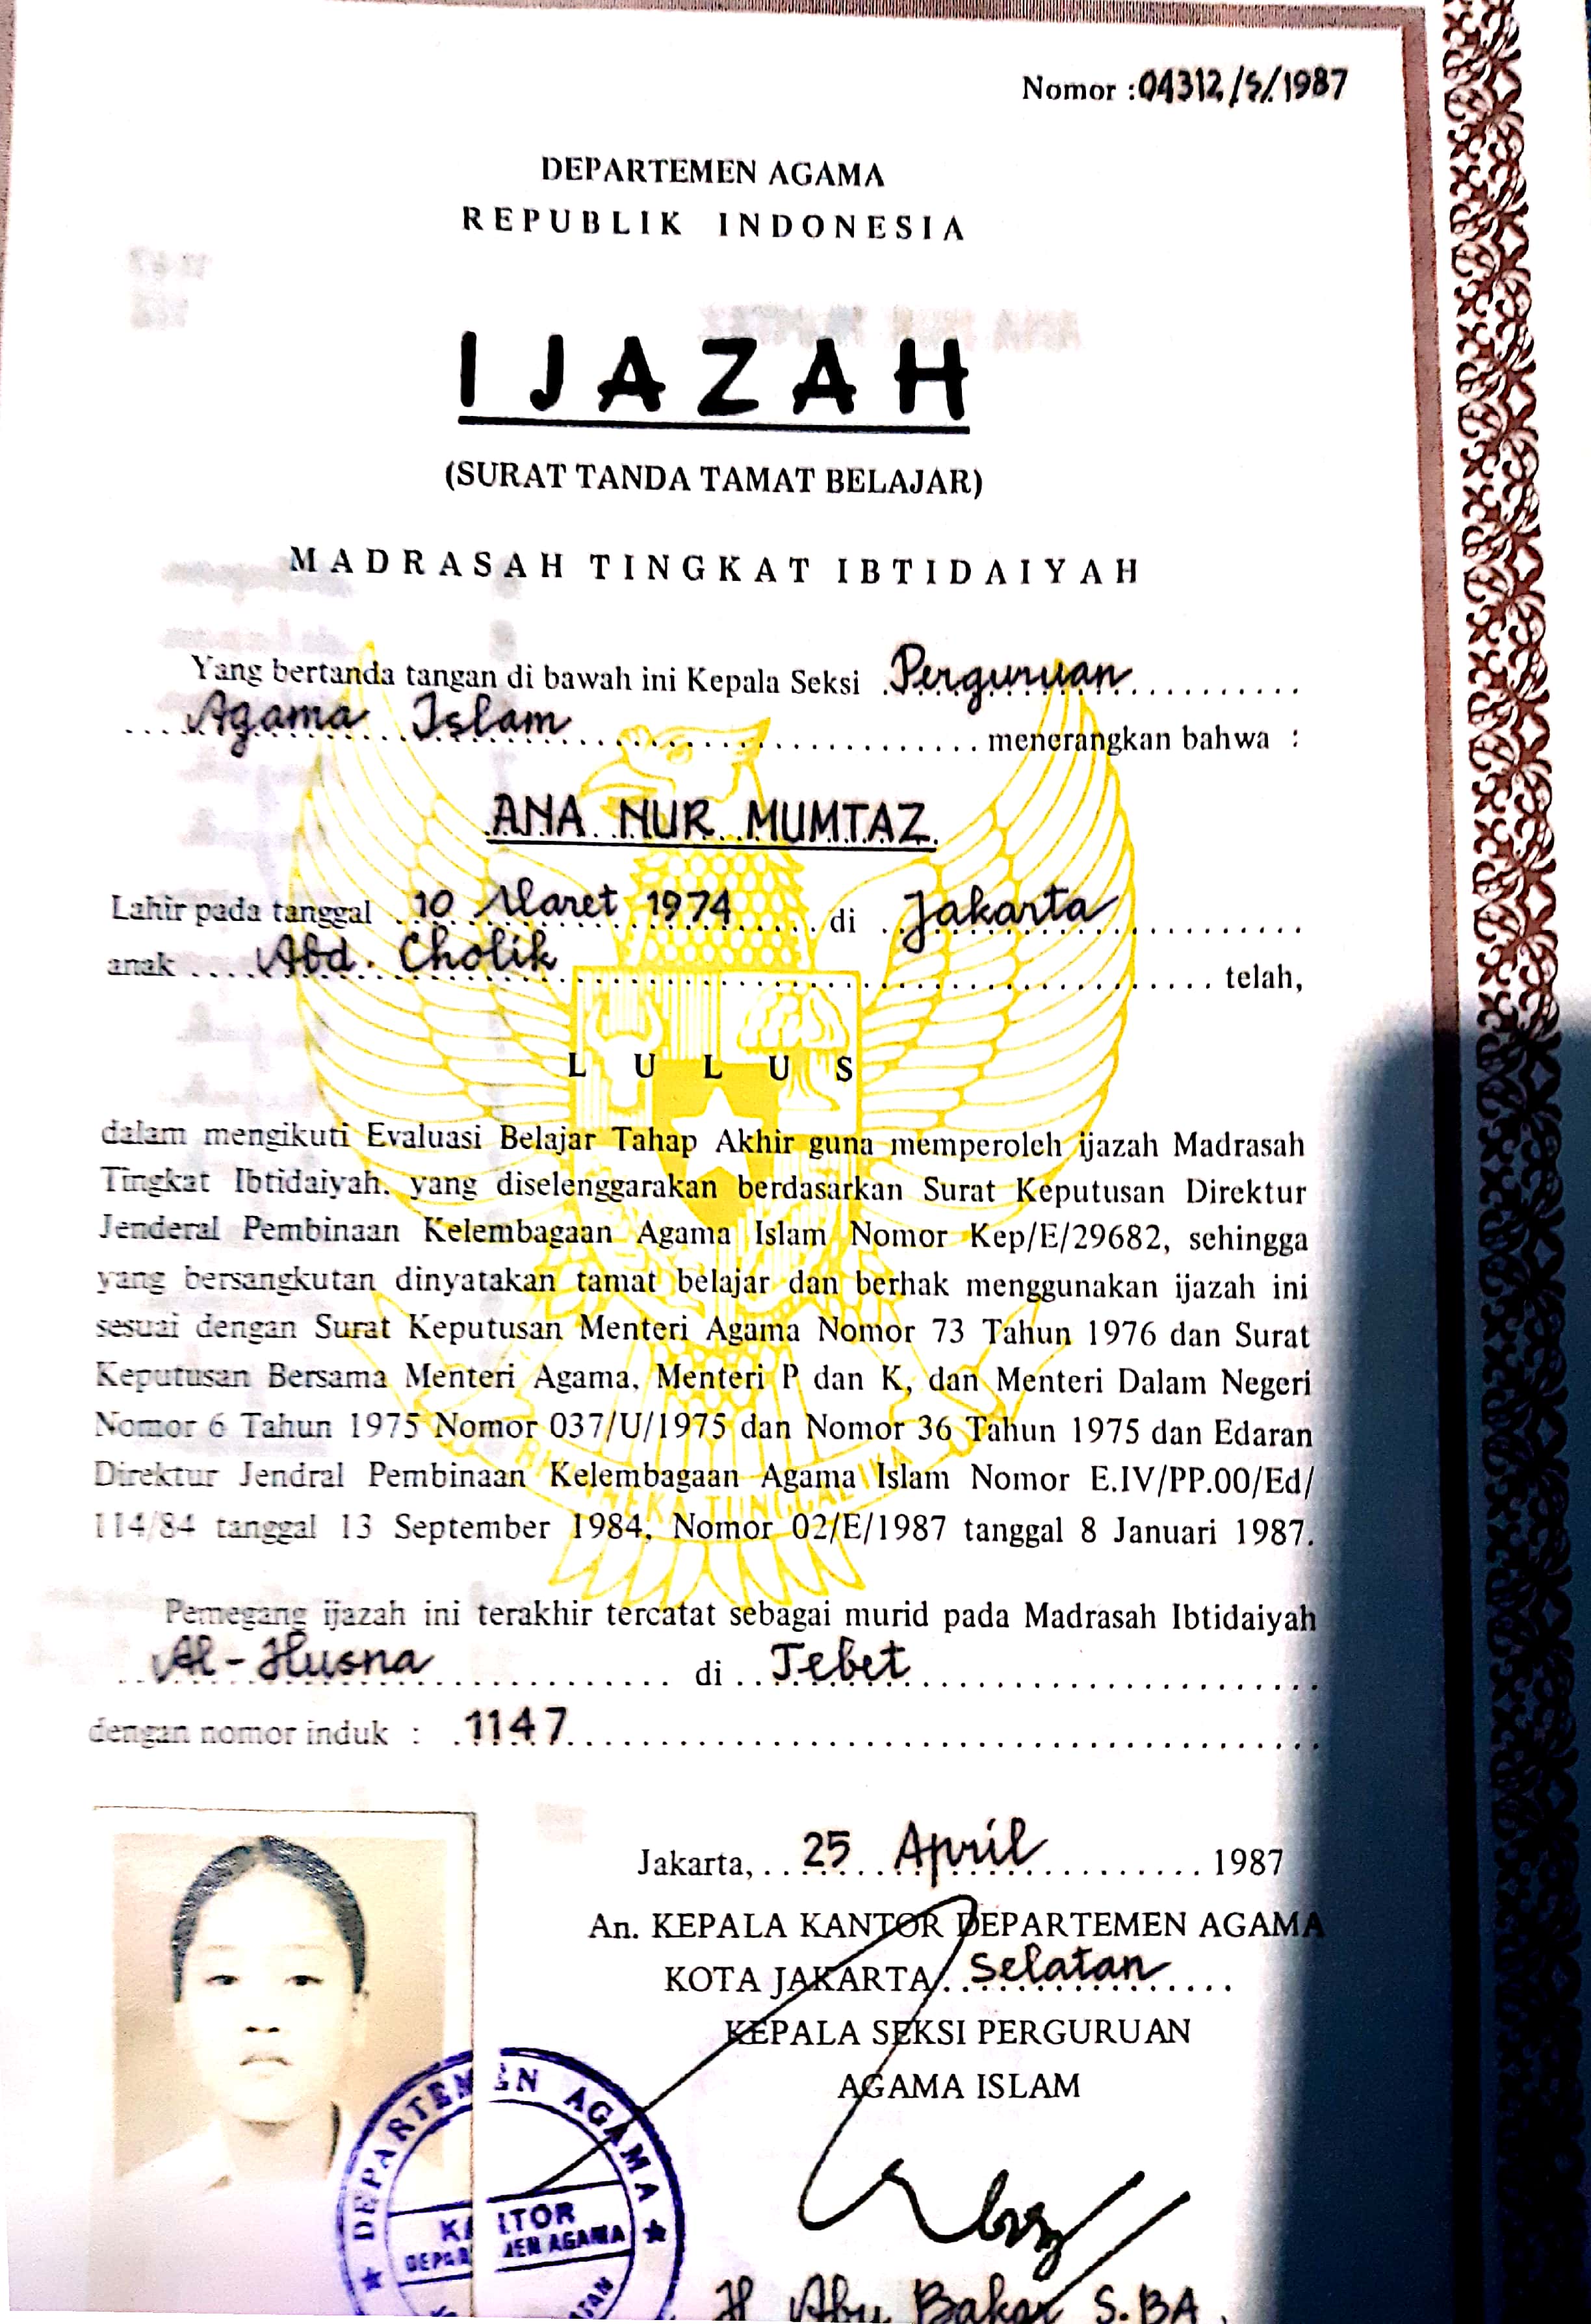 Nomor : 04312/S/1987
DEPARTEMEN AGAMA
REPUBLIK INDONESIA
IJAZAH
(SURAT TANDA TAMAT BELAJAR)
MADRASAH TINGKAT IBTIDAIYAH
Yang bertanda tangan di bawah ini Kepala Seksi Perguruan
Agama Islam menerangkan bahwa :
ANA NUR MUMTAZ
Lahir pada tanggal 10 Maret 1974 di Jakarta
anak Abd. Cholik telah,
L U L U S
dalam mengikuti Evaluasi Belajar Tahap Akhir guna memperoleh ijazah Madrasah
Tingkat Ibtidaiyah. yang diselenggarakan berdasarkan Surat Keputusan Direktur
Jenderal Pembinaan Kelembagaan Agama Islam Nomor Kep/E/29682, sehingga
yang bersangkutan dinyatakan tamat belajar dan berhak menggunakan ijazah ini
sesuai dengan Surat Keputusan Menteri Agama Nomor 73 Tahun 1976 dan Surat
Keputusan Bersama Menteri Agama, Menteri P dan K, dan Menteri Dalam Negeri
Nomor 6 Tahun 1975 Nomor 037/U/1975 dan Nomor 36 Tahun 1975 dan Edaran
Direktur Jendral Pembinaan Kelembagaan Agama Islam Nomor E.IV/PP.00/Ed/
114/84 tanggal 13 September 1984, Nomor 02/E/1987 tanggal 8 Januari 1987.
Pemegang ijazah ini terakhir tercatat sebagai murid pada Madrasah Ibtidaiyah
Al-Husna di Tebet
dengan nomor induk : 1147
Jakarta, 25 April 1987
An. KEPALA KANTOR DEPARTEMEN AGAMA
KOTA JAKARTA Selatan
KEPALA SEKSI PERGURUAN
AGAMA ISLAM
DEPARTEMEN AGAMA
KANTOR
DEPARTEMEN AGAMA
H Abu Bakar S.BA.